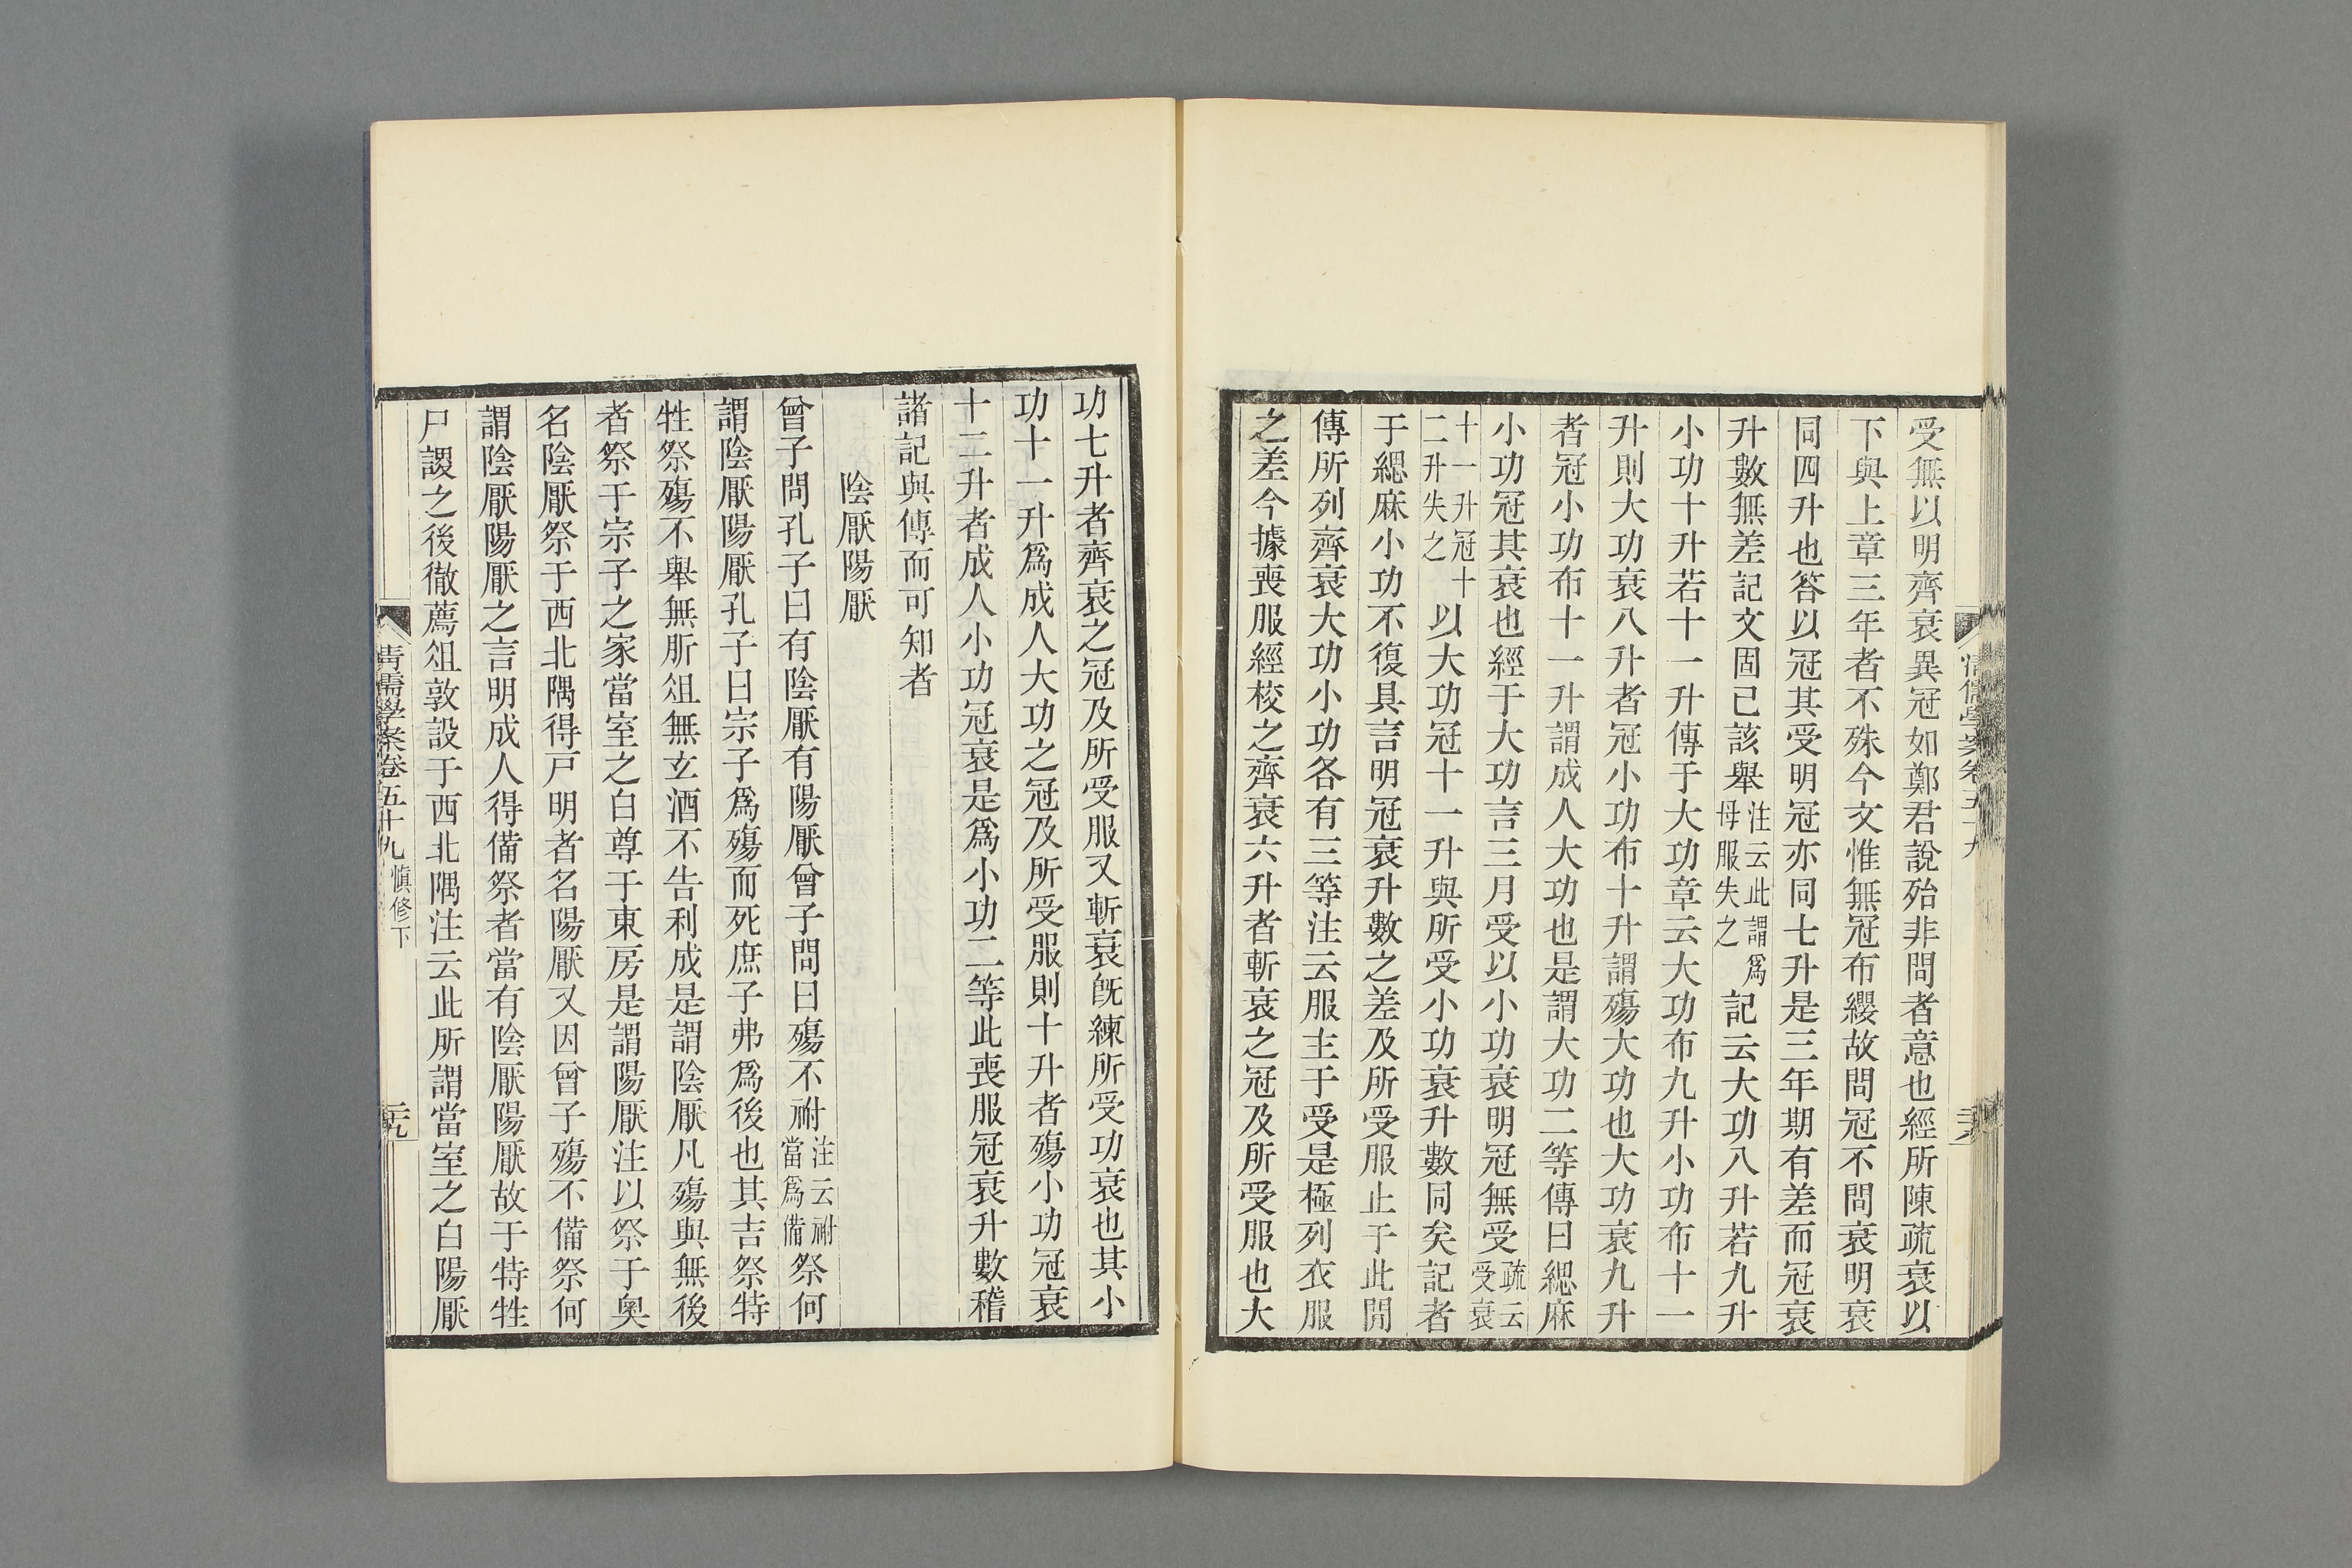 受無以明齊衰異冠如鄭君說殆非問者意也經所陳疏衰以
下與上章三年者不殊今文惟無冠布纓故問冠不問衰明衰
同四升也答以冠其受明冠亦同七升是三年期有差而冠衰
升數無差記文固已該舉注云此謂爲母服失之記云大功八升若九升
小功十升若十一升傳于大功章云大功布九升小功布十一
升則大功衰八升者冠小功布十升謂殤大功也大功衰九升
者冠小功布十一升謂成人大功也是謂大功二等傳曰緦麻
小功冠其衰也經于大功言三月受以小功衰明冠無受疏云受衰
十一升冠十二升失之以大功冠十一升與所受小功衰升數同矣記者
于緦麻小功不復具言明冠衰升數之差及所受服止于此閒
傳所列齊衰大功小功各有三等注云服主于受是極列衣服
之差今據喪服經校之齊衰六升者斬衰之冠及所受服也大
功七升者齊衰之冠及所受服又斬衰旣練所受功衰也其小
功十一升爲成人大功之冠及所受服則十升者殤小功冠衰
十二升者成人小功冠衰是爲小功二等此喪服冠衰升數稽
諸記與傳而可知者
陰厭陽厭
曾子問孔子曰有陰厭有陽厭曾子問曰殤不祔注云祔當爲備祭何
謂陰厭陽厭孔子曰宗子爲殤而死庶子弗爲後也其吉祭特
牲祭殤不舉無肵俎無玄酒不告利成是謂陰厭凡殤與無後
者祭于宗子之家當室之白尊于東房是謂陽厭注以祭于奧
名陰厭祭于西北隅得戶明者名陽厭又因曾子殤不備祭何
謂陰厭陽厭之言明成人得備祭者當有陰厭陽厭故于特牲
尸謖之後徹薦俎敦設于西北隅注云此所謂當室之白陽厭
清儒學案卷五十九 慎修下
二十九